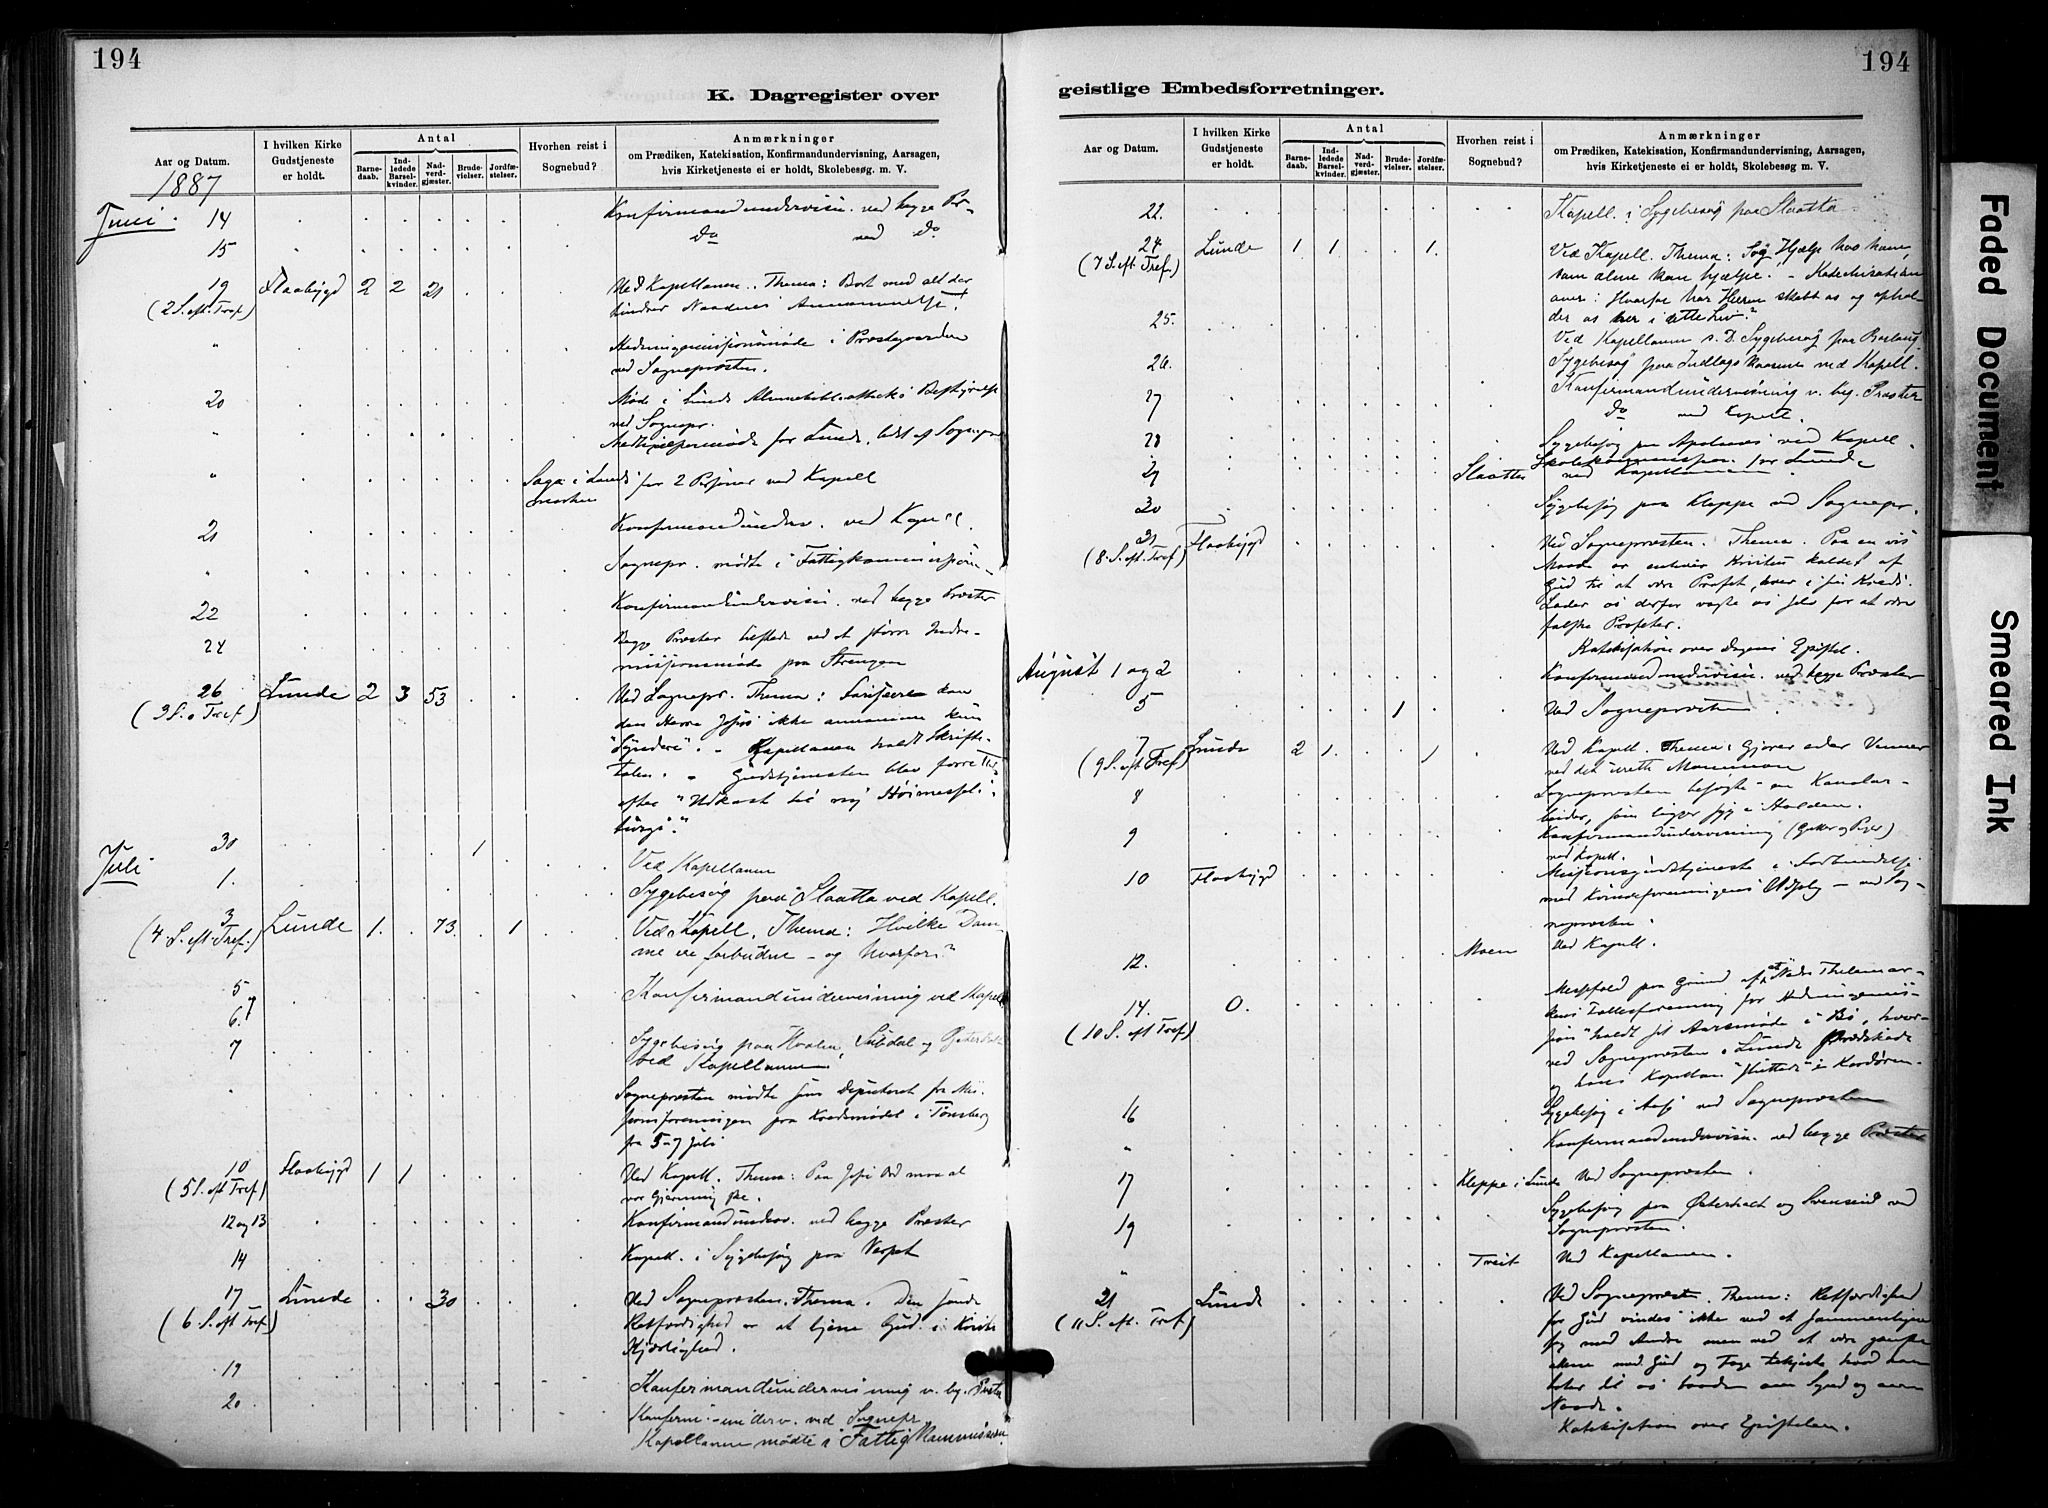 194
K. Dagregister over
Aar og Datum.
I hvilken Kirke Gudstjeneste er holdt.
Antal
Barnedaab.
Indledede Barselkvinder.
Nadverdgjæster.
Brudevielser.
Jordfæstelser.
Hvorhen reist i Sognebud?
Anmærkninger
om Prædiken, Katekisation, Konfirmandundervisning, Aarsagen,
hvis Kirketjeneste ei er holdt, Skolebesøg m. V.
1887
Juni. 14 Konfirmandundervisn. ved begge Pr-
15 do ved do
19 Flaabygd 2 2 21 Ved Kapellanen. Thema: Bort med alt der
(2 S. eft. Tref) hindrer Naadens Annammelse!
" Hedningemissionsmøde i Prestegaarden
ved Sognepresten.
20 Møde i Lunde Almuebibliotheks Bestyrelse
ved Sognepr.
" for Lunde, ledt af Sognepr
" for 2 Personer ved Kapell
21 Konfirmandunderv. ved Kapell.
" Sognepr. mødte i Fattigkommissionen
22 Konfirmandundervisn. ved begge Præster
24 Begge Præster ved et større Indre-
missionsmøde paa Strengen
26 Lunde 2 3 53 Ved Sognepr. Thema: Farisæere kan
(3 S. e Tref) den Herre Jesus ikke annamme kun
"Syndere". - Kapellanen holdt Skrifte-
talen. - Gudstjenesten blev forrettet
efter "Udkast til ny Høimesseli-
turgi."
30 1 Ved Kapellanen
Juli 1. Sygebesøg paa Slaatta ved Kapell.
3 Lunde 1. 73. 1 Ved Kapell. Thema: Hvilke Dom-
(4. S. eft. Tref.) me ere forbudne - og hvorfor?
5
6. og Konfirmandundervisning ved Kapell
7 Sygebesøg paa Hvalen, Subdal og
ved Kapellanen
" Sognepresten mødte som Deputeret fra Mis-
sionsforeningen paa Kredsmødet i Tønsberg
fra 5-7 Juli
10 Flaabygd 1 1 Ved Kapell. Thema: Paa Jesu Ord maa al
(5 S. eft Tref) vor Gjerning ske.
12 og 13 Konfirmandunderv. ved begge Præster
14 Kapell. i Sygebesøg paa
17 Lunde 30 Ved Sognepresten. Thema. Den sande
(6. S. eft Tref.) Retfærdighed er at tjene Gud i Kristi
Kjærlighed.
19 Konfirmandundervisning v. beg. Præster
20 Konfirm.-underv. ved Sognepr.
Kapellanen mødte i Fattigkommissionen
194
geistlige Embedsforretninger.
Aar og Datum.
I hvilken Kirke Gudstjeneste er holdt.
Antal
Barnedaab.
Indledede Barselkvinder.
Nadverdgjæster.
Brudevielser.
Jordfæstelser.
Hvorhen reist i Sognebud?
Anmærkninger
om Prædiken, Katekisation, Konfirmandundervisning, Aarsagen,
hvis Kirketjeneste ei er holdt, Skolebesøg m. V.
22. Kapell. i Sygebesøg paa Slaatta
24 Lunde 1 1 1. Ved Kapell. Thema: Søg Hjælp hos ham,
(7 S. eft Tref.) som alene kan hjælpe. - Katechisation
over: Hvorfor har Herren skabt os og ophol-
der os her i dette Liv?
25. Ved Kapellanen s. D. Sygebesøg paa
26. Sygebesøg paa ved Kapell.
27 Konfirmandundervisning v. beg. Præster
do ved Kapell.
28 Sygebesøg paa ved Kapell.
29 Slaatta ved Kapellanen. Skolekommission for Lunde
30 Sygebesøg paa Kleppe ved Sognepr.
31 Flaabygd Ved Sognepresten. Thema. Paa en vis
(8. S. eft. Tref) Maade er enhver Kristen kaldet af
Gud til at være Profet, hver i sin Kreds.
Lader os derfor vogte os selv for at være
falske Profeter.
Katekisation over Dagens Epistel.
August 1 og 2 Konfirmandundervisn. ved begge Præster
5 1 Ved Sognepresten.
7 Lunde 2 1. 1 Ved Kapell. Thema: Gjører eder Venner
(9 S. eft Tref) ved det urette Mammon
8 Sognepresten besøgte en Kanalar-
beider, som ligger syg i Holden.
9 Konfirmandundervisning (Gutter og Piger)
ved Kapell.
10 Flaabygd Missionsgudstjeneste i Forbindelse
med Kvindeforeningens - ved Sog-
nepresten.
12. Moen Ved Kapell.
14. O. Messefald paa Grund af, at "Nedre Thelemar-
(10 S. eft Tref.) kens Fællesforening for Hedningemis-
sion" holdt sit Aarsmøde i Bø, hvor-
ved Sognepresten i Lunde prædikede
og hans Kapellan
16 Sygebesøg i ved Sognepresten
" Konfirmandundervisn. ved begge Præster
17 Kleppe i Lunde Ved Sognepresten.
19 Sygebesøg paa Østerholt og Svenseid ved
Sognepresten.
" Ved Kapellanen.
21 Lunde Ved Sogneprest. Thema: Retfærdighed
(11 S. eft. Tref) for Gud vindes ikke ved at sammenligne
sig med Andre men ved at være ganske
alene med Gud og
os baade om Synd og om
Naade.
Katekisation over Epistelen.
Faded Document
Smeared Ink